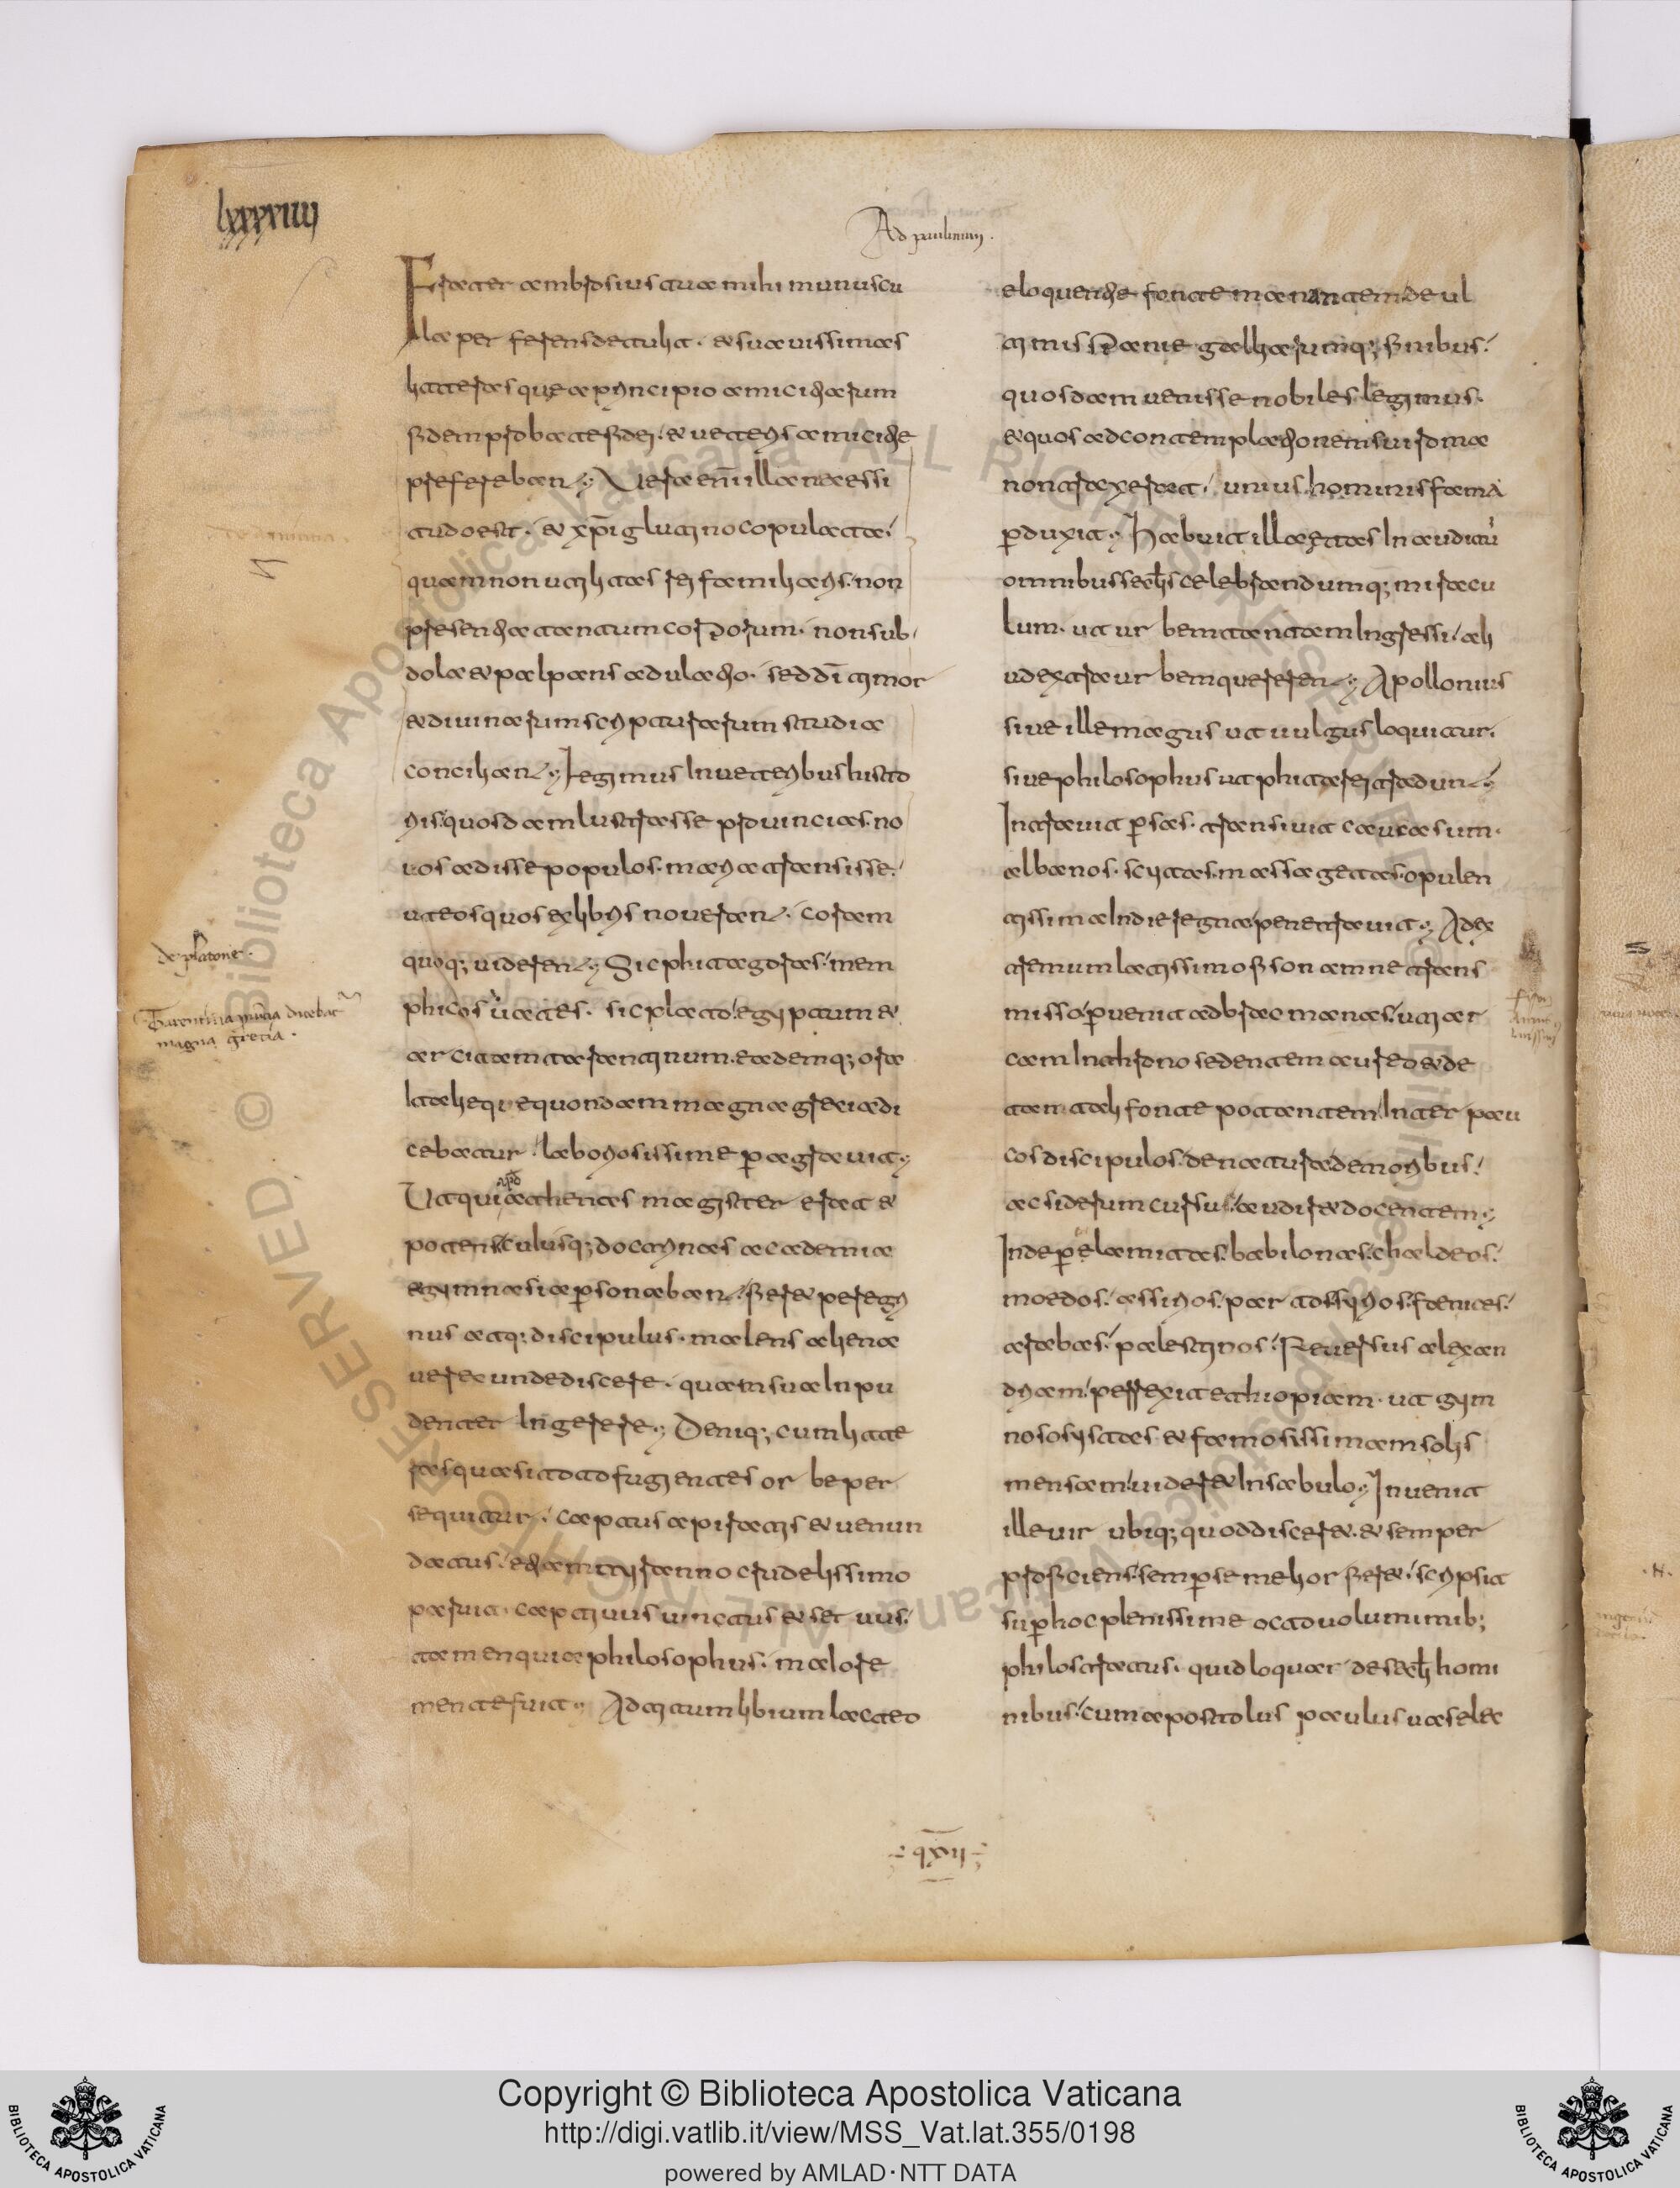 lxxxviiij
Ad paulinum.
Frater ambrosius tua mihi munuscu
la perferens detulit. & suavissimas
litteras que a principio amicitiarum
fidem probate fidei. & veteris amicitie
preferebant. Vera eni illa necessi
tudo est. & xpi glutino copulata.
quam non utilitas rei familiaris. non
presentia tantum corporum. non sub
dola & palpans adulatio. sed di timor
& divinarum scripturarum studia
conciliant. Legimus In veteribus histo
riis. quosdam lustrasse provincias. no
vos adisse populos. maria transisse.
ut eos quos ex libris noverant. coram
quoq; viderent. Sic phitagoras. mem
phicos vates. sic plato. egyptum &
arcitam tarentinum. eademq; ora
italie que quondam magna grecia di
cebatur. laboriosissime pagravit.
Ut qui athenas magister erat &
potens. cuiusq; doctrinas academia
gymnasia psonabant. fier& peregri
nus atq; discipulus. malens aliena
verec unde discere. quam sua Inpu
denter Ingerere. Deniq; cum litte
ras quasi toto fugientes orbe per
sequitur. captus a piratis & venun
datus. etiam tyranno crudelissimo
paruit. captivus vinctus & servus.
tamen quia philosophus. maiore
mente fuit. Ad titum libium lacteo
eloquentie fonte manantem. de ul
timis spanie galliarumq; finibus.
quosdam venisse nobiles legimus.
& quos ad contemplationem sui roma
non traxerat. unius hominis fama
pduxit. Habuit illa etas Inauditu
omnibus seclis celebrandumq; miracu
lum. ut urbem tantam Ingressi. ali
ud extra urbem quererent. Apollonius
sive ille magus ut vulgus loquitur.
sive philosophus ut phitagorei tradunt.
Intravit psas. transivit caucasum.
albanos. scytas. massagetas. opulen
tissima Indie regna penetravit. Ad ex
tremum latissimo fison amne trans
misso. pvenit ad bracmanas. ut iar
cam In throno sedentem aureo & de
tantali fonte potantem. Inter pau
cos discipulos. de natura de moribus.
ac siderum cursu. audir& docentem.
Inde p elamitas. babilonas. chaldeos.
moedos. assirios. partos. syrios. fenices.
arabas. palestinos. Reversus alexan
driam. perrexit ethiopiam. ut gym
nosofistas & famosissimam solis
mensam. vider& In sabulo. Invenit
ille vir ubiq; quod discer&. & semper
proficiens. semp se melior fier&. scripsit
sup hoc plenissime octo voluminib;
philostratus. quid loquar de secli homi
nibus. cum apostolus paulus vas elec
de platone.
Tarentina pvincia dicebat
magna grecia.
q xxij
Copyright © Biblioteca Apostolica Vaticana
http://digi.vatlib.it/view/MSS_Vat.lat.355/0198
powered by AMLAD·NTT DATA
BIBLIOTECA APOSTOLICA VATICANA
BIBLIOTECA APOSTOLICA VATICANA